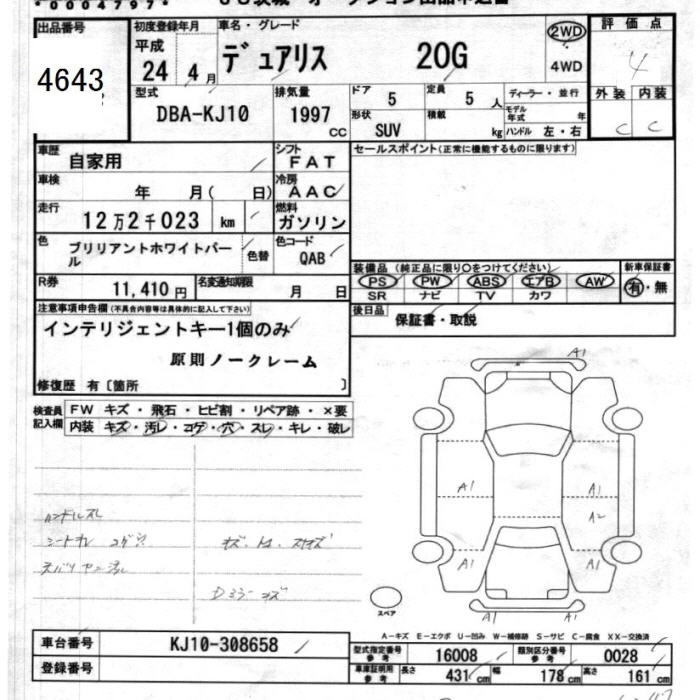 *0004797*
出品番号
4643
初度登録年月
平成
24年4月
車名・グレード
デュアリス 20G
2WD
4WD
評価点
4
型式
DBA-KJ10
排気量
1997 CC
ドア 5
定員 5 人
ディーラー・並行
形状 SUV
積載 kg
モデル年式 年
ハンドル 左・右
外装 内装
C C
車歴 自家用
シフト FAT
セールスポイント(正常に機能するものに限ります)
車検 年 月( 日)
冷房 AAC
走行 12万2千023 km
燃料 ガソリン
色 ブリリアントホワイトパール
色替
色コード QAB
装備品 (純正品に限り○をつけてください)
新車保証書
PS PW ABS エアB AW
SR ナビ TV カワ
有・無
R券 11,410円
名変通知期限 月 日
後日品 保証書・取説
注意事項申告欄(不具合内容等は具体的に記入して下さい)
インテリジェントキー1個のみ
原則ノークレーム
修復歴 有〔箇所 〕
検査員記入欄
FW キズ・飛石・ヒビ割・リペア跡・×要
内装 キズ・汚レ・コゲ・穴・スレ・キレ・破レ
A1
A1
A1
A1
A2
A1
A1
A1
ハンドルスレ
Dミラーキズ
スペア
A-キズ E-エクボ U-凹み W-補修跡 S-サビ C-腐食 XX-交換済
車台番号 KJ10-308658
型式指定番号 参考 16008
類別区分番号 参考 0028
登録番号
車庫証明用 参考 長さ 431cm 幅 178cm 高さ 161cm